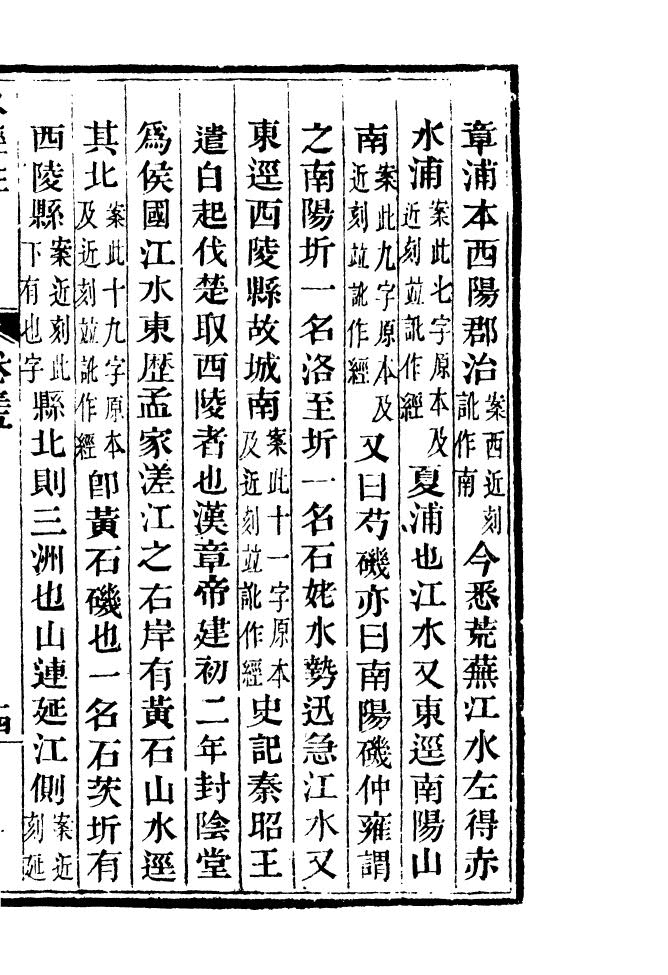 章浦本西陽郡治案西近刻訛作南今悉荒蕪江水左得赤
水浦案此七字原本及近刻竝訛作經夏浦也江水又東逕南陽山
南案此九字原本及近刻竝訛作經又曰芍磯亦曰南陽磯仲雍謂
之南陽圻一名洛至圻一名石姥水勢迅急江水又
東逕西陵縣故城南案此十一字原本及近刻竝訛作經史記秦昭王
遣白起伐楚取西陵者也漢章帝建初二年封陰堂
爲侯國江水東歷孟家溠江之右岸有黃石山水逕
其北案此十九字原本及近刻竝訛作經卽黃石磯也一名石茨圻有
西陵縣案近刻此下有也字縣北則三洲也山連延江側案近刻延